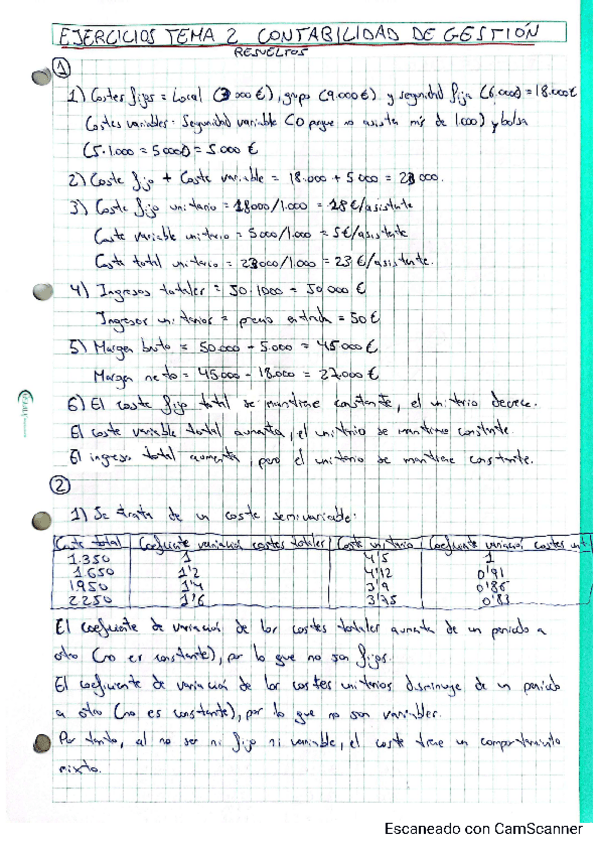 EJERCICIOS TEMA 2 CONTABILIDAD DE GESTIÓN
RESUELTOS
1
1) Costes fijos = Local (3000€), grupo (9.000€) y seguridad fija (6.000) = 18.000€
Costes variables: Seguridad variable (0 porque no asisten más de 1.000) y bolsa
(5·1.000 = 5000) = 5000 €
2) Coste fijo + Coste variable = 18.000 + 5000 = 23000.
3) Coste fijo unitario = 18000/1.000 = 18€/asistente
Coste variable unitario = 5000/1.000 = 5€/asistente
Coste total unitario = 23000/1.000 = 23 €/asistente.
4) Ingresos totales = 50·1000 = 50000€
Ingresos unitarios = precio entrada = 50€
5) Margen bruto = 50.000 - 5.000 = 45000€
Margen neto = 45000 - 18.000 = 27000€
6) El coste fijo total se mantiene constante, el unitario decrece.
El coste variable total aumenta, el unitario se mantiene constante.
El ingreso total aumenta, pero el unitario se mantiene constante.
2
1) Se trata de un coste semivariable:
Coste total Coeficiente variación costes totales Coste unitario Coeficiente variación costes unit.
1.350 1 4'5 1
1.650 1'2 4'12 0'91
1950 1'4 3'9 0'86
2250 1'6 3'75 0'83
El coeficiente de variación de los costes totales aumenta de un periodo a
otro (no es constante), por lo que no son fijos.
El coeficiente de variación de los costes unitarios disminuye de un periodo
a otro (no es constante), por lo que no son variables.
Por tanto, al no ser ni fijo ni variable, el coste tiene un comportamiento
mixto.
Escaneado con CamScanner